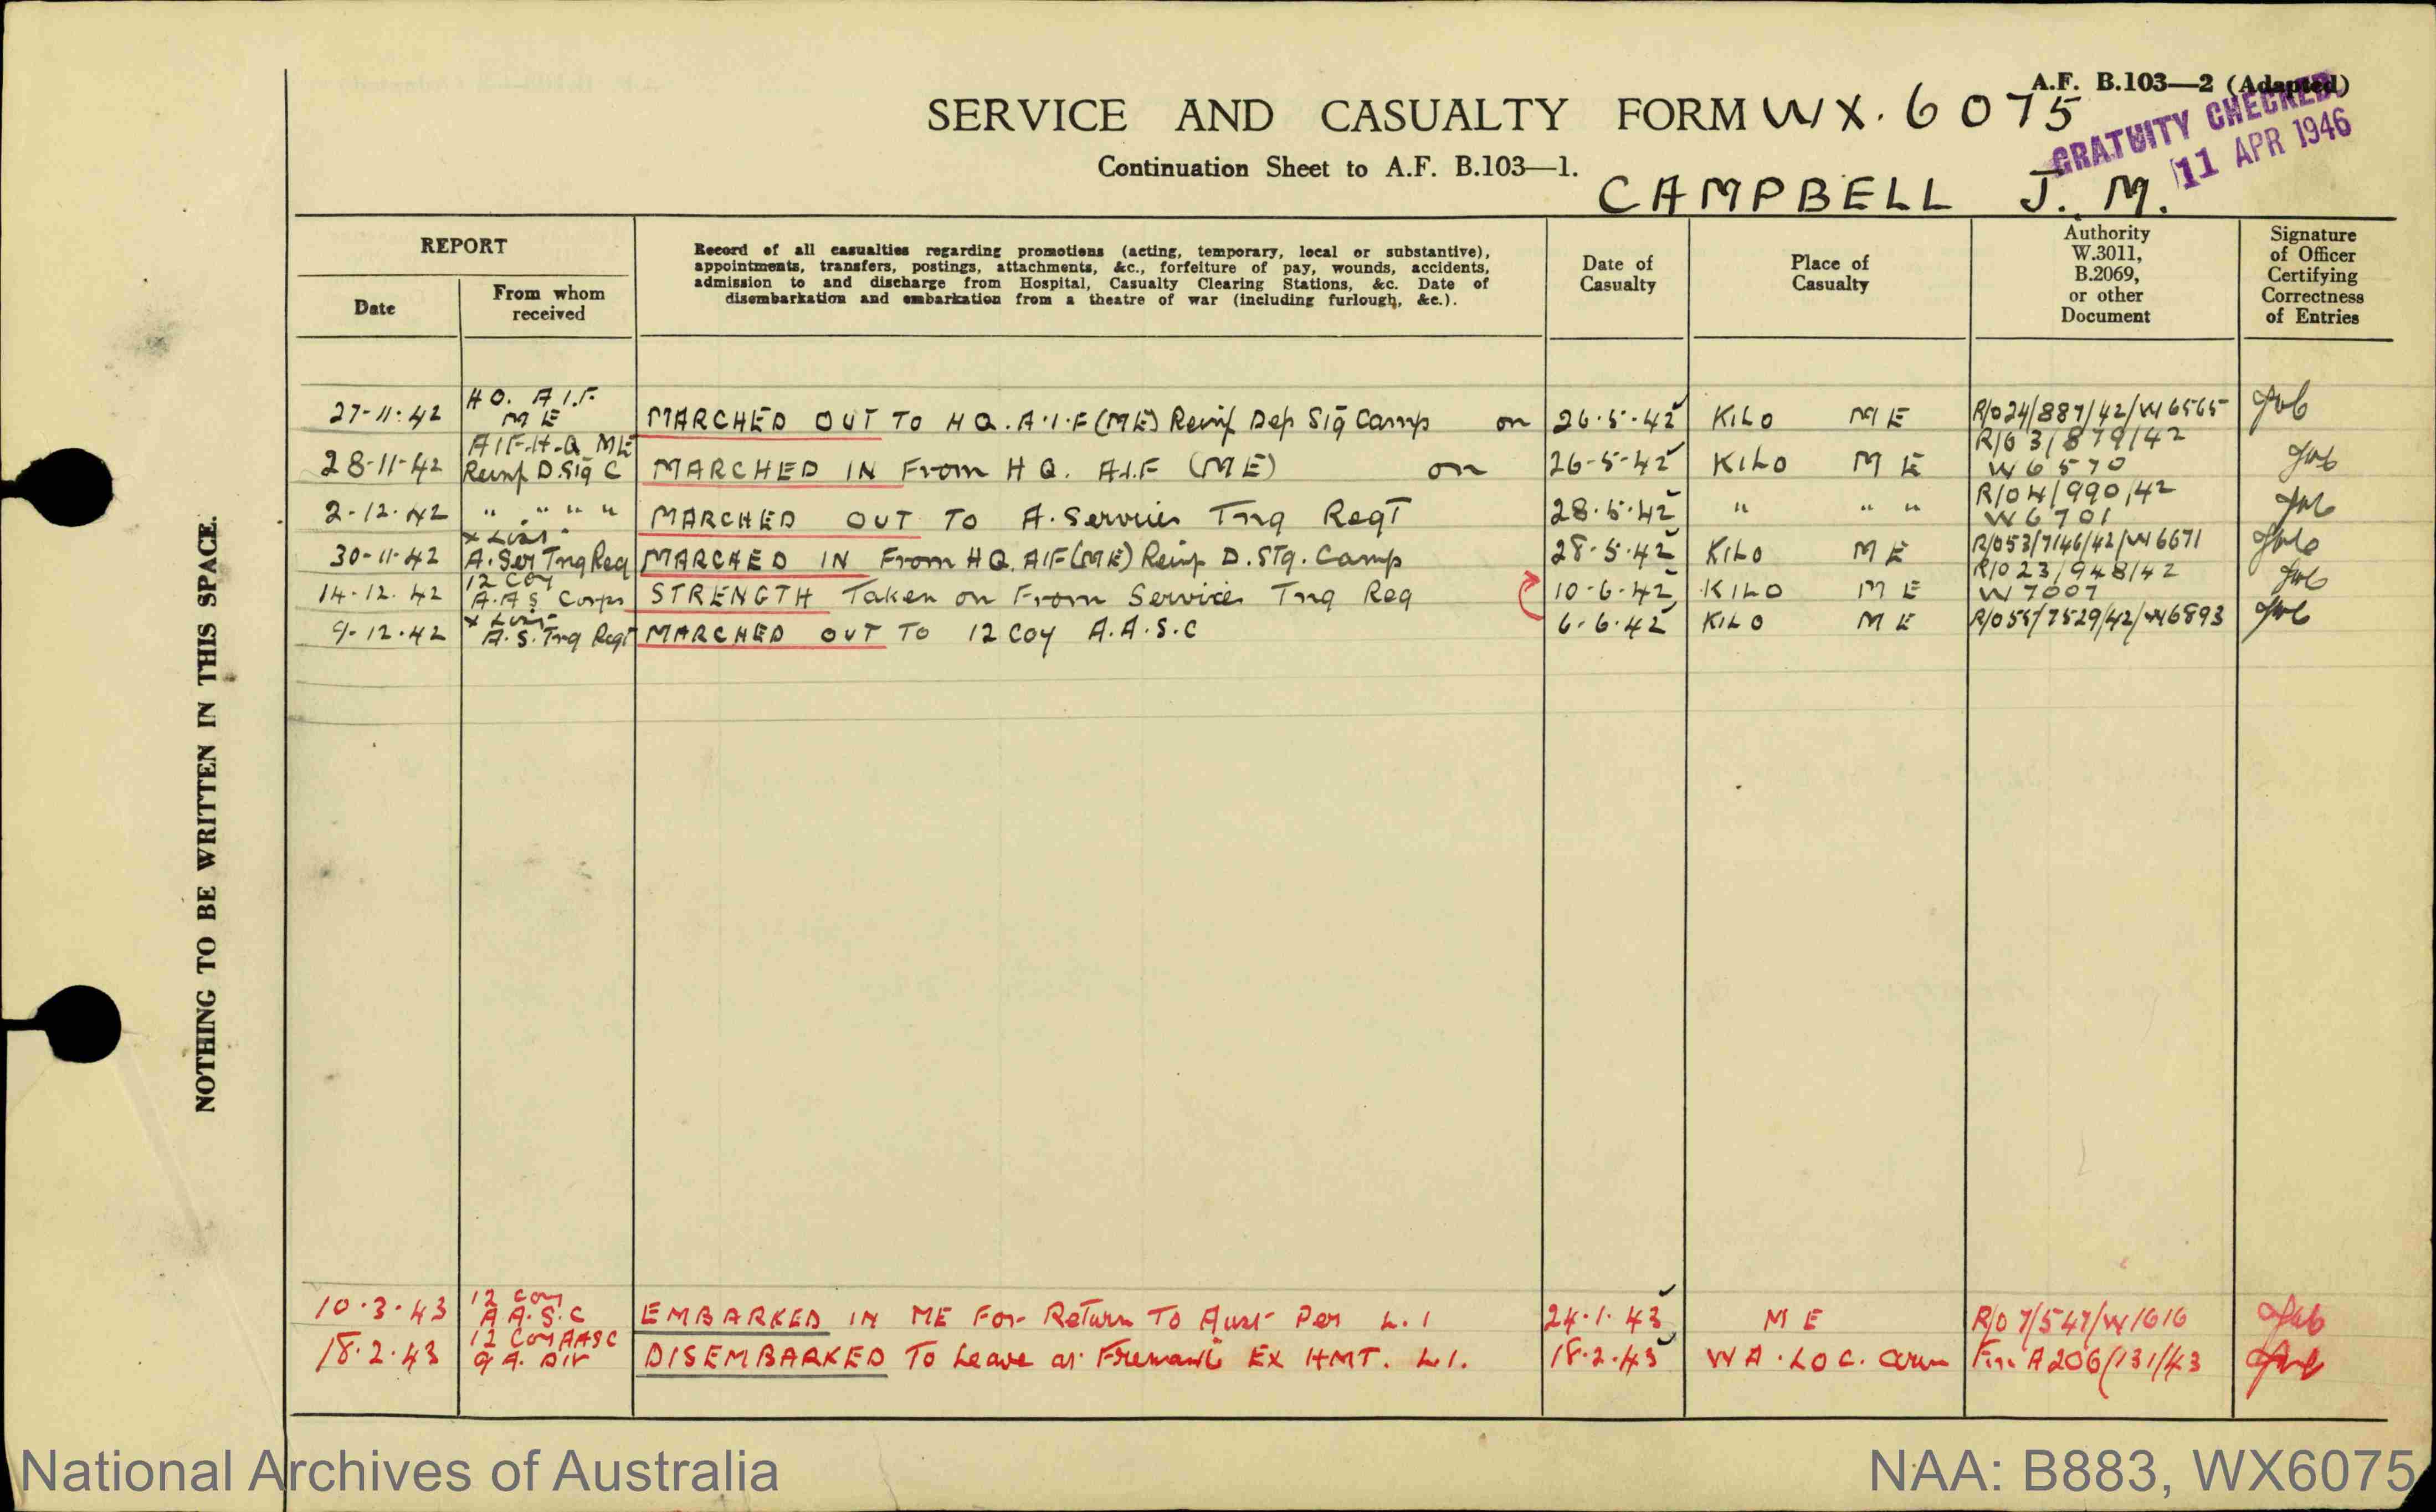 A.F. B.103—2 (Adapted)
SERVICE AND CASUALTY FORM WX. 6075
GRATUITY CHECKED
11 APR 1946
Continuation Sheet to A.F. B.103—1.
CAMPBELL J. M.
REPORT
Date
From whom
received
Record of all casualties regarding promotions (acting, temporary, local or substantive),
appointments, transfers, postings, attachments, &c., forfeiture of pay, wounds, accidents,
admission to and discharge from Hospital, Casualty Clearing Stations, &c. Date of
disembarkation and embarkation from a theatre of war (including furlough, &c.).
Date of
Casualty
Place of
Casualty
Authority
W.3011,
B.2069,
or other
Document
Signature
of Officer
Certifying
Correctness
of Entries
27-11-42 HQ. A.I.F. ME MARCHED OUT TO HQ. A.I.F (ME) Reinf Dep Sig Camp on 26-5-42 KILO ME R/024/887/42/W6565
28-11-42 AIF.H.Q ME Reinf D.Sig C MARCHED IN From HQ. A.I.F (ME) on 26-5-42 KILO ME R/63/879/42 W6570
2-12-42 " " " " MARCHED OUT TO A. Services Tng Regt 28-5-42 " " " R/04/990/42 W6701
30-11-42 X List A. Ser Tng Reg MARCHED IN From HQ. AIF (ME) Reinf D. STg. Camp 28-5-42 KILO ME R/053/7146/42/W6671
14-12-42 12 Coy A.A.S Corps STRENGTH Taken on From Services Tng Reg 10-6-42 KILO ME R/023/948/42 W7007
9-12-42 X List A.S. Tng Regt MARCHED OUT TO 12 Coy A.A.S.C 6-6-42 KILO ME R/055/7529/42/W6893
10-3-43 12 Coy A A.S.C EMBARKED IN ME For Return To Aust Per L.1 24-1-43 ME R/07/547/W1616
18-2-43 12 Coy AASC 9 A. DIV DISEMBARKED TO Leave at Fremantle EX HMT. L1. 18-2-43 WA. LOC. A206/131/43
NOTHING TO BE WRITTEN IN THIS SPACE.
National Archives of Australia
NAA: B883, WX6075